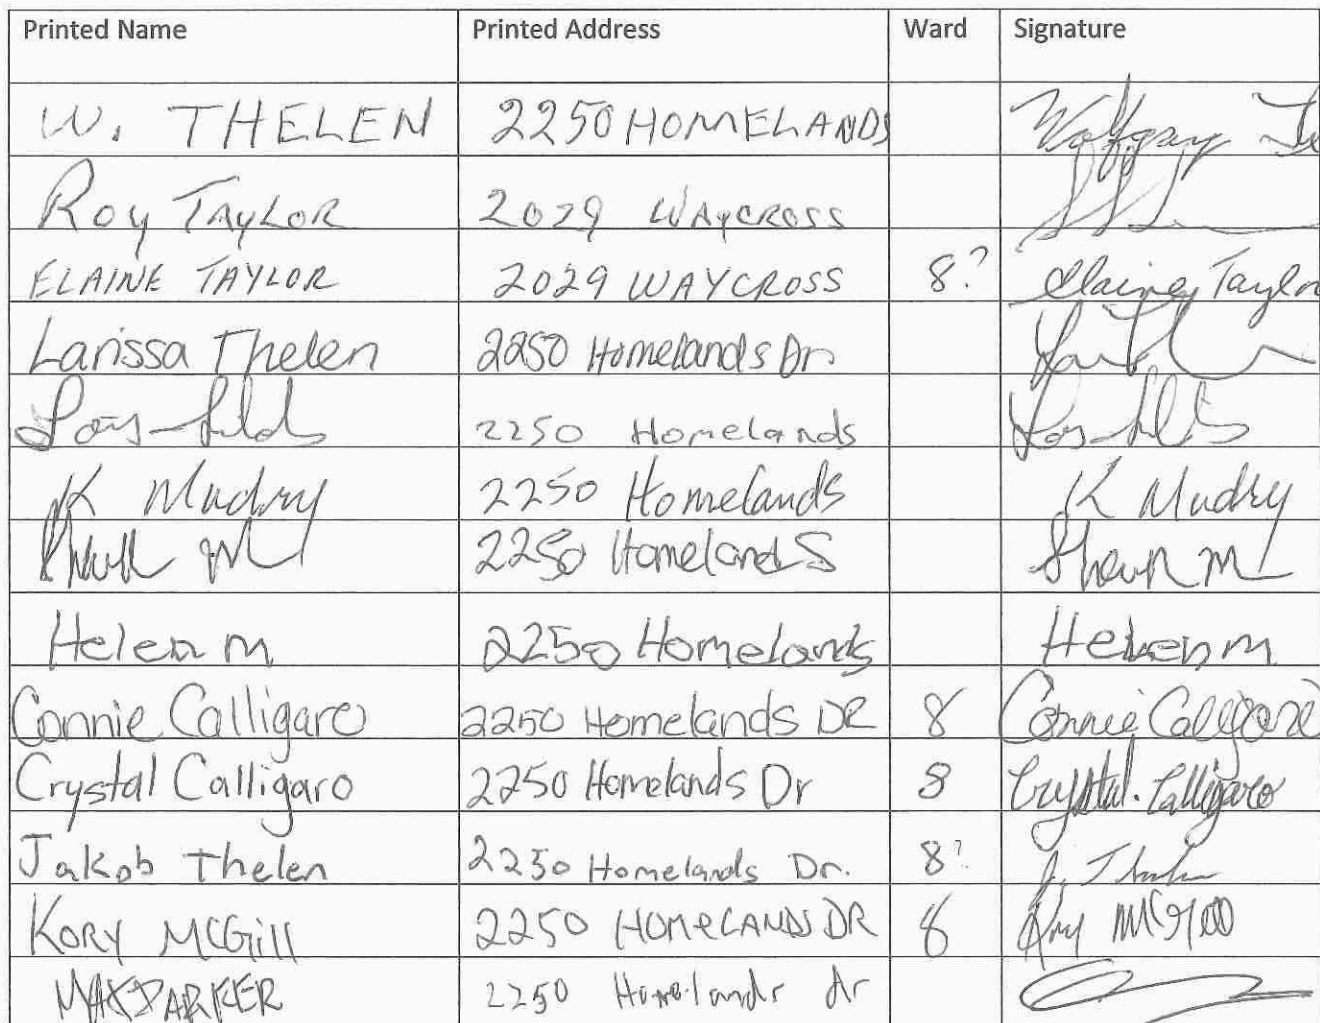 Printed Name Printed Address Ward Signature
W. THELEN 2250 HOMELANDS Wolfgang
ROY TAYLOR 2029 WAYCROSS
ELAINE TAYLOR 2029 WAYCROSS 8? Elaine Taylor
Larissa Thelen 2250 Homelands Dr.
2250 Homelands
K Mudry 2250 Homelands K Mudry
2250 Homelands Shaun M
Helen m 2250 Homelands Helen m
Connie Calligaro 2250 Homelands DR 8 Connie
Crystal Calligaro 2250 Homelands Dr 8 Crystal. Calligaro
Jakob Thelen 2250 Homelands Dr. 8? J. Thelen
KORY MCGill 2250 HOMELANDS DR 8 Kory McGill
MAX PARKER 2250 Homelands dr